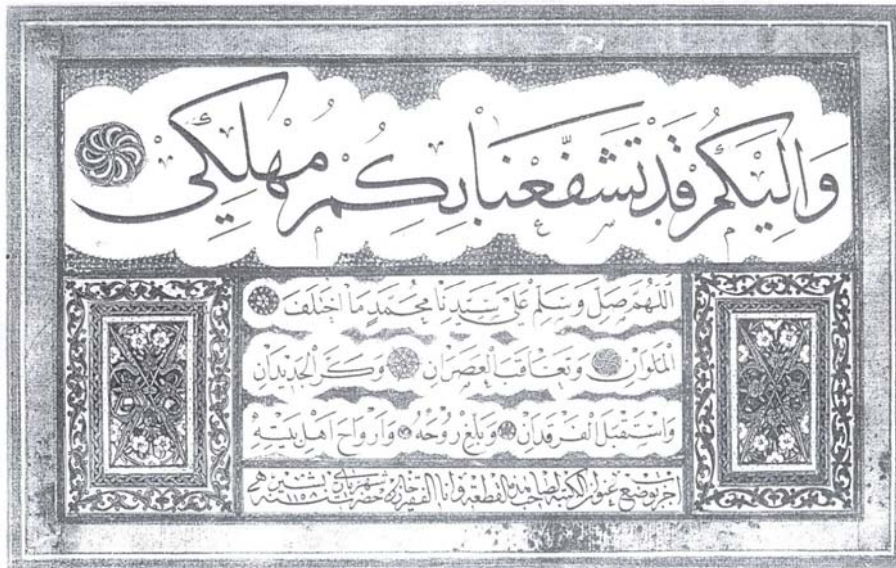 وَاِلَيْكُمْ قَدْ تَشَفَّعْنَا بِكُمْ مُهْلِكِي
اَللّٰهُمَّ صَلِّ وَسَلِّمْ عَلٰى سَيِّدِنَا مُحَمَّدٍ مَا اخْتَلَفَ
الْمَلَوَانِ وَتَعَاقَبَ الْعَصْرَانِ وَكَرَّ الْجَدِيْدَانِ
وَاسْتَقْبَلَ الْفَرْقَدَانِ وَبَلِّغْ رُوْحَهُ وَاَرْوَاحَ اَهْلِ بَيْتِهِ
اجزت بوضع عنوان الكتبة لصاحب هذه القطعة وانا الفقير سنة ١١٥٨